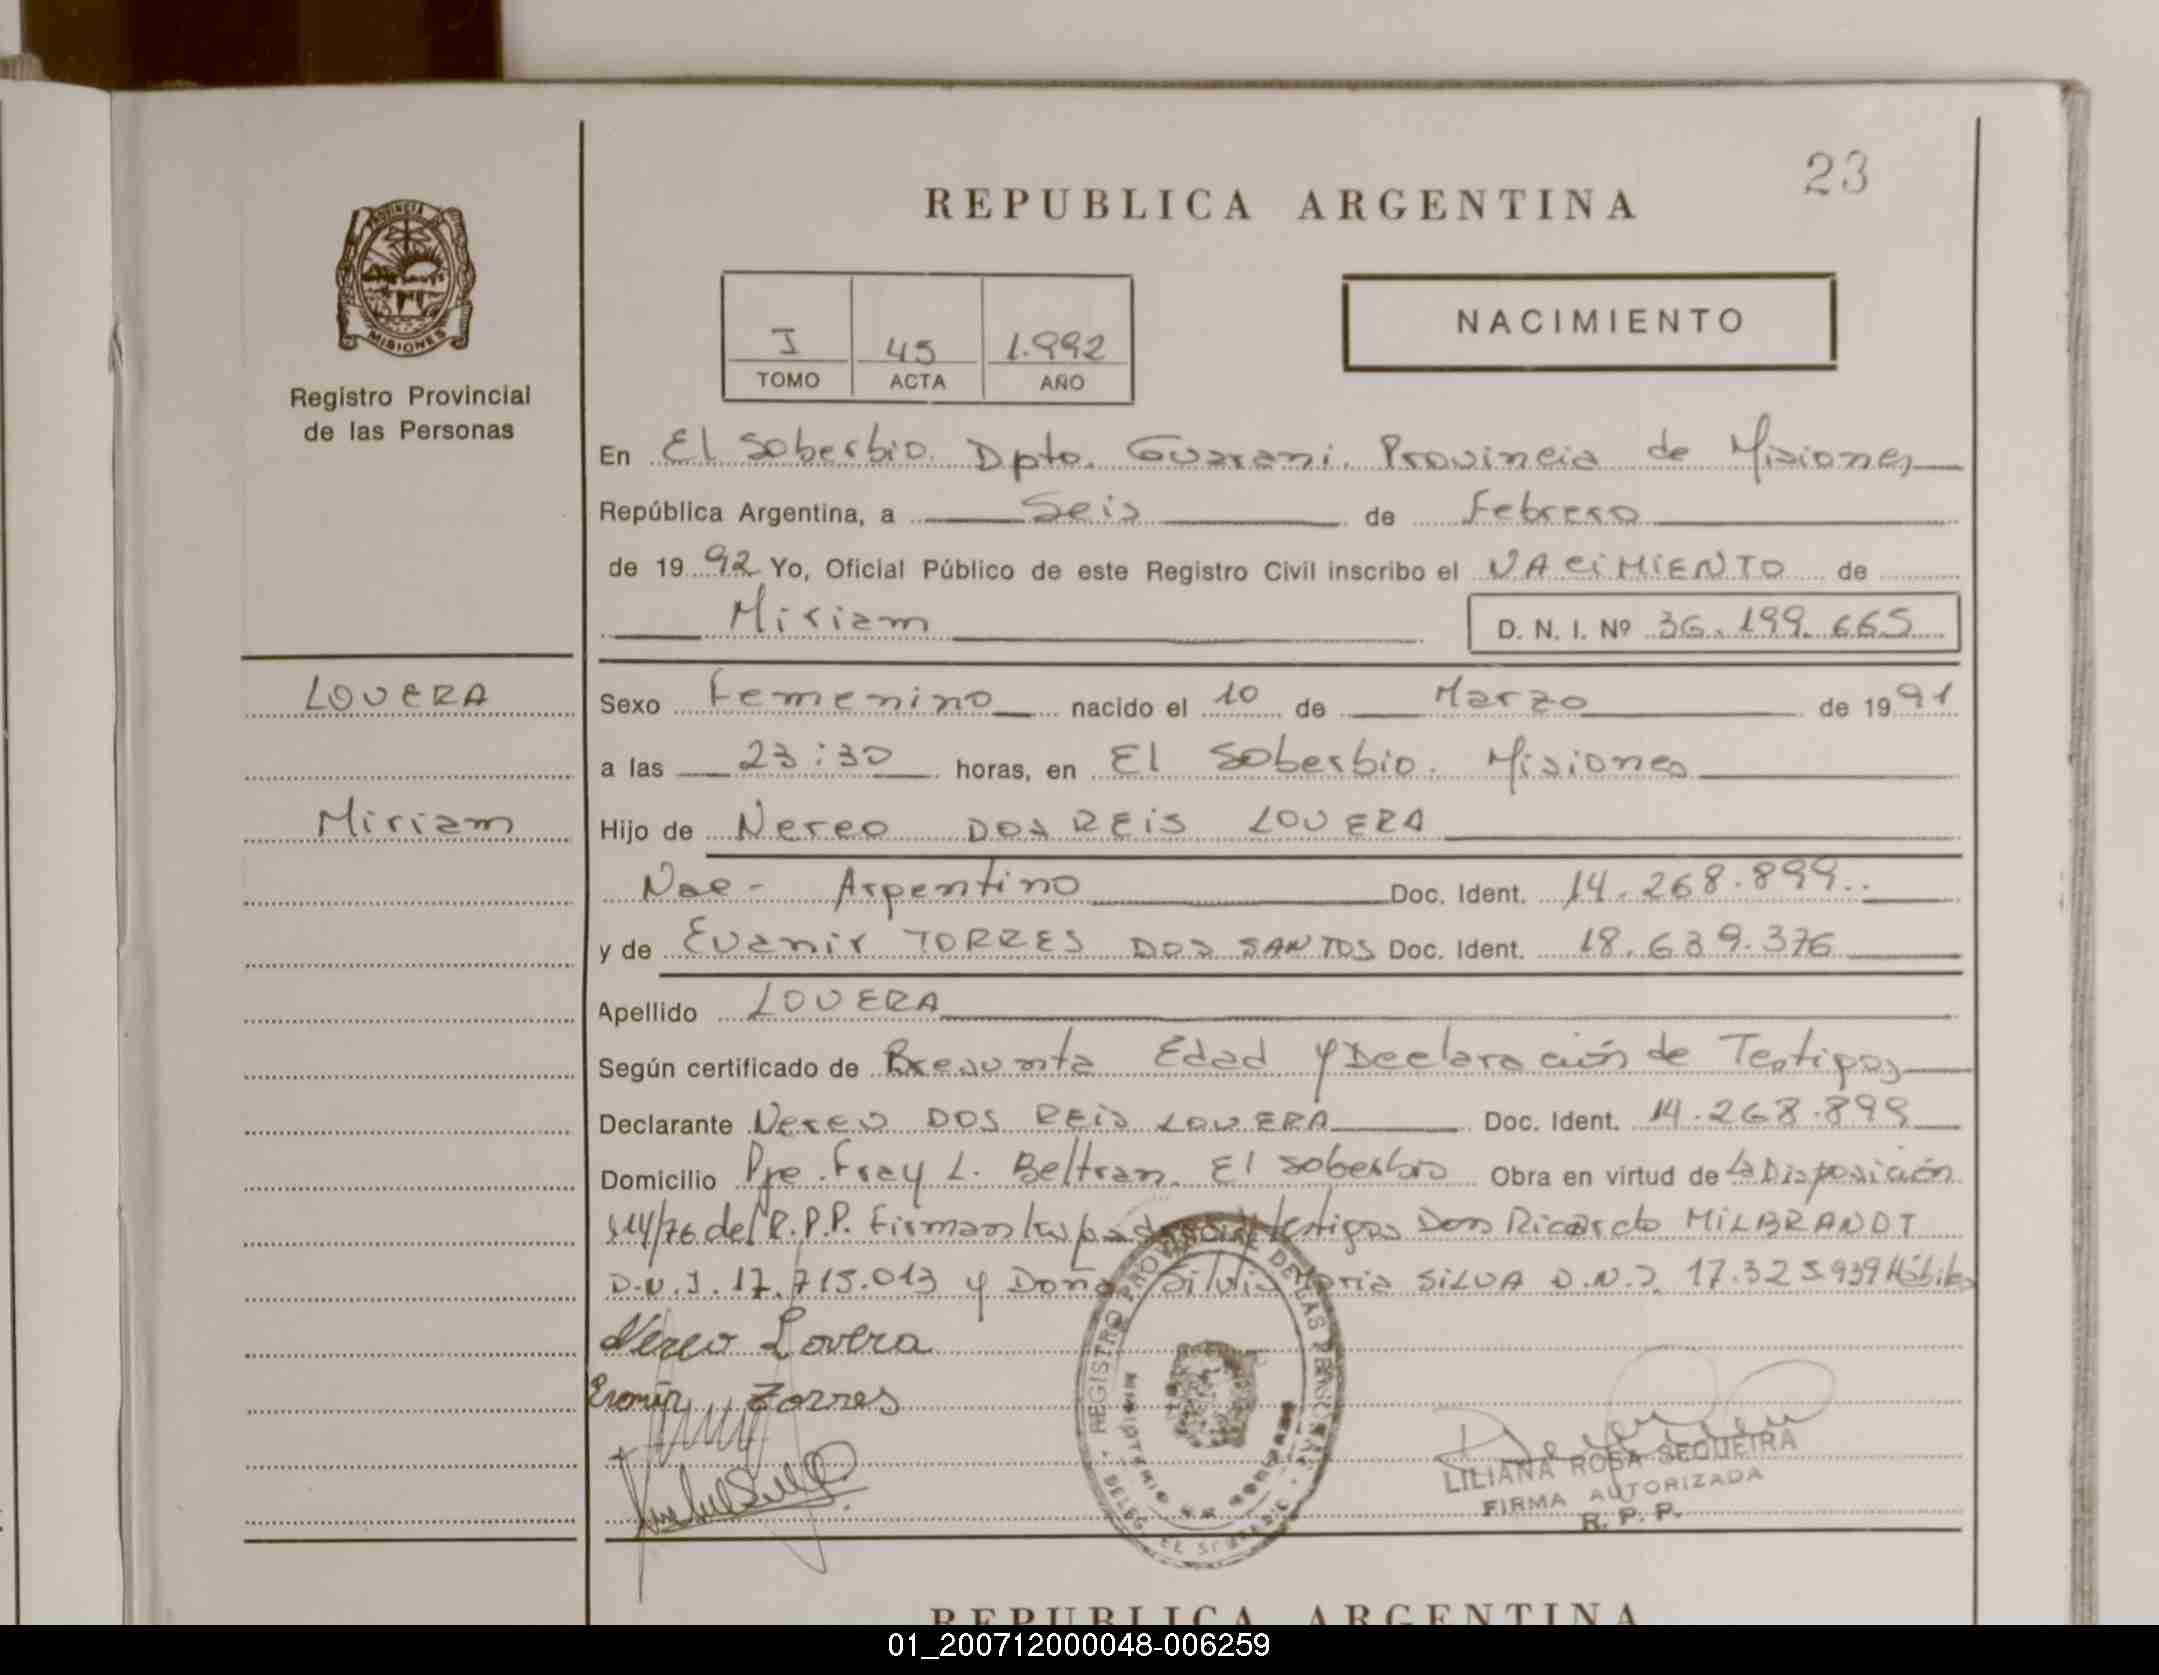 23
REPUBLICA ARGENTINA
PROVINCIA DE
MISIONES
Registro Provincial
de las Personas
I 45 1.992
TOMO ACTA AÑO
NACIMIENTO
En El Soberbio. Dpto. Guarani. Provincia de Misiones
República Argentina, a Seis de Febrero
de 1992 Yo, Oficial Público de este Registro Civil inscribo el NACIMIENTO de
Miriam D. N. I. Nº 36.199.665
LOVERA
Miriam
Sexo Femenino nacido el 10 de Marzo de 1991
a las 23:30 horas, en El Soberbio. Misiones
Hijo de Nereo DOS REIS LOVERA
Nac- Argentino Doc. Ident. 14.268.899
y de Evanir TORRES DOS SANTOS Doc. Ident. 18.639.376
Apellido LOVERA
Según certificado de Presunta Edad y Declaración de Testigos
Declarante Nereo DOS REIS LOVERA Doc. Ident. 14.268.899
Domicilio Pje. Fray L. Beltran. El Soberbio Obra en virtud de la Disposición
514/76 del R.P.P. Firman testigos Don Ricardo MILBRANDT
D.N.I. 17.715.013 y Doña Silvia Maria SILVA D.N.I. 17.325.939 Hábiles
Nereo Lovera
Torres
REGISTRO PROVINCIAL DE LAS PERSONAS
LILIANA ROSA SEQUEIRA
FIRMA AUTORIZADA
R. P. P.
REPUBLICA ARGENTINA
01_200712000048-006259